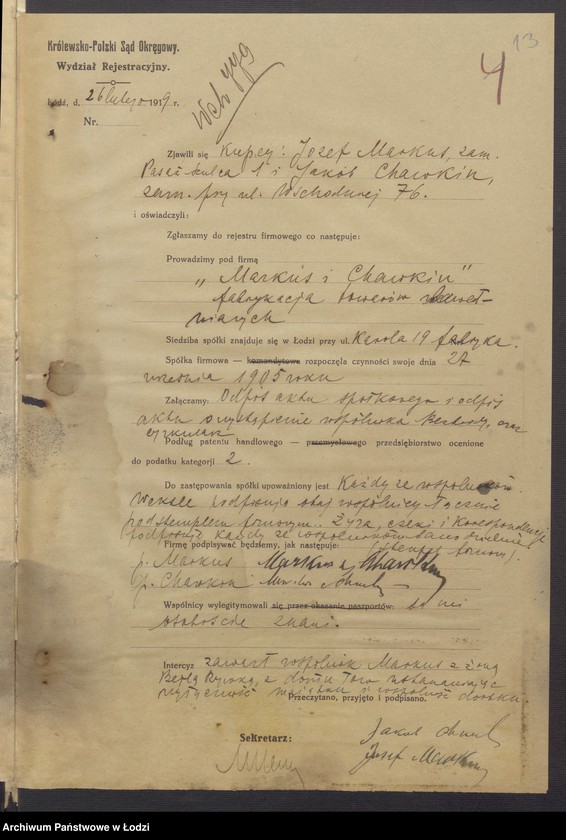 13
4
Królewsko-Polski Sąd Okręgowy.
Wydział Rejestracyjny.
Łódź, d. 26 lutego 1919 r.
Nr.
Zjawili się Kupcy: Jozef Markus, zam.
Pasaż Szulca 1 i Jakób Chawkin,
zam. przy ul. Wschodniej 76.
i oświadczyli:
Zgłaszamy do rejestru firmowego co następuje:
Prowadzimy pod firmą
„Markus i Chawkin"
fabrykacja towarów baweł-
nianych
Siedziba spółki znajduje się w Łodzi przy ul. Karola 19 fabryka.
Spółka firmowa — komandytowa rozpoczęła czynności swoje dnia 27
września 1905 roku
Załączamy: Odpis aktu spółkowego i odpis
aktu wystąpienia wspólnika oraz
cyrkularz
Podług patentu handlowego — przemysłowego przedsiębiorstwo ocenione
do podatku kategorji 2.
Do zastępowania spółki upoważniony jest Każdy ze wspólników.
Weksle podpisują obaj wspólnicy łącznie
pod stemplem firmowym. Żyra, czeki i Korespondencję
podpisuje każdy ze wspólników
Firmę podpisywać będziemy, jak następuje:
p. Markus Markus i Chawkin
p. Chawkin
Wspólnicy wylegitymowali się przez okazanie paszportów:
osobiście znani.
Intercyz zawarł wspólnik Markus z żoną
z domu
majątku i wspólność dorobku.
Przeczytano, przyjęto i podpisano.
Sekretarz:
Jakób
Josef Markus
Archiwum Państwowe w Łodzi